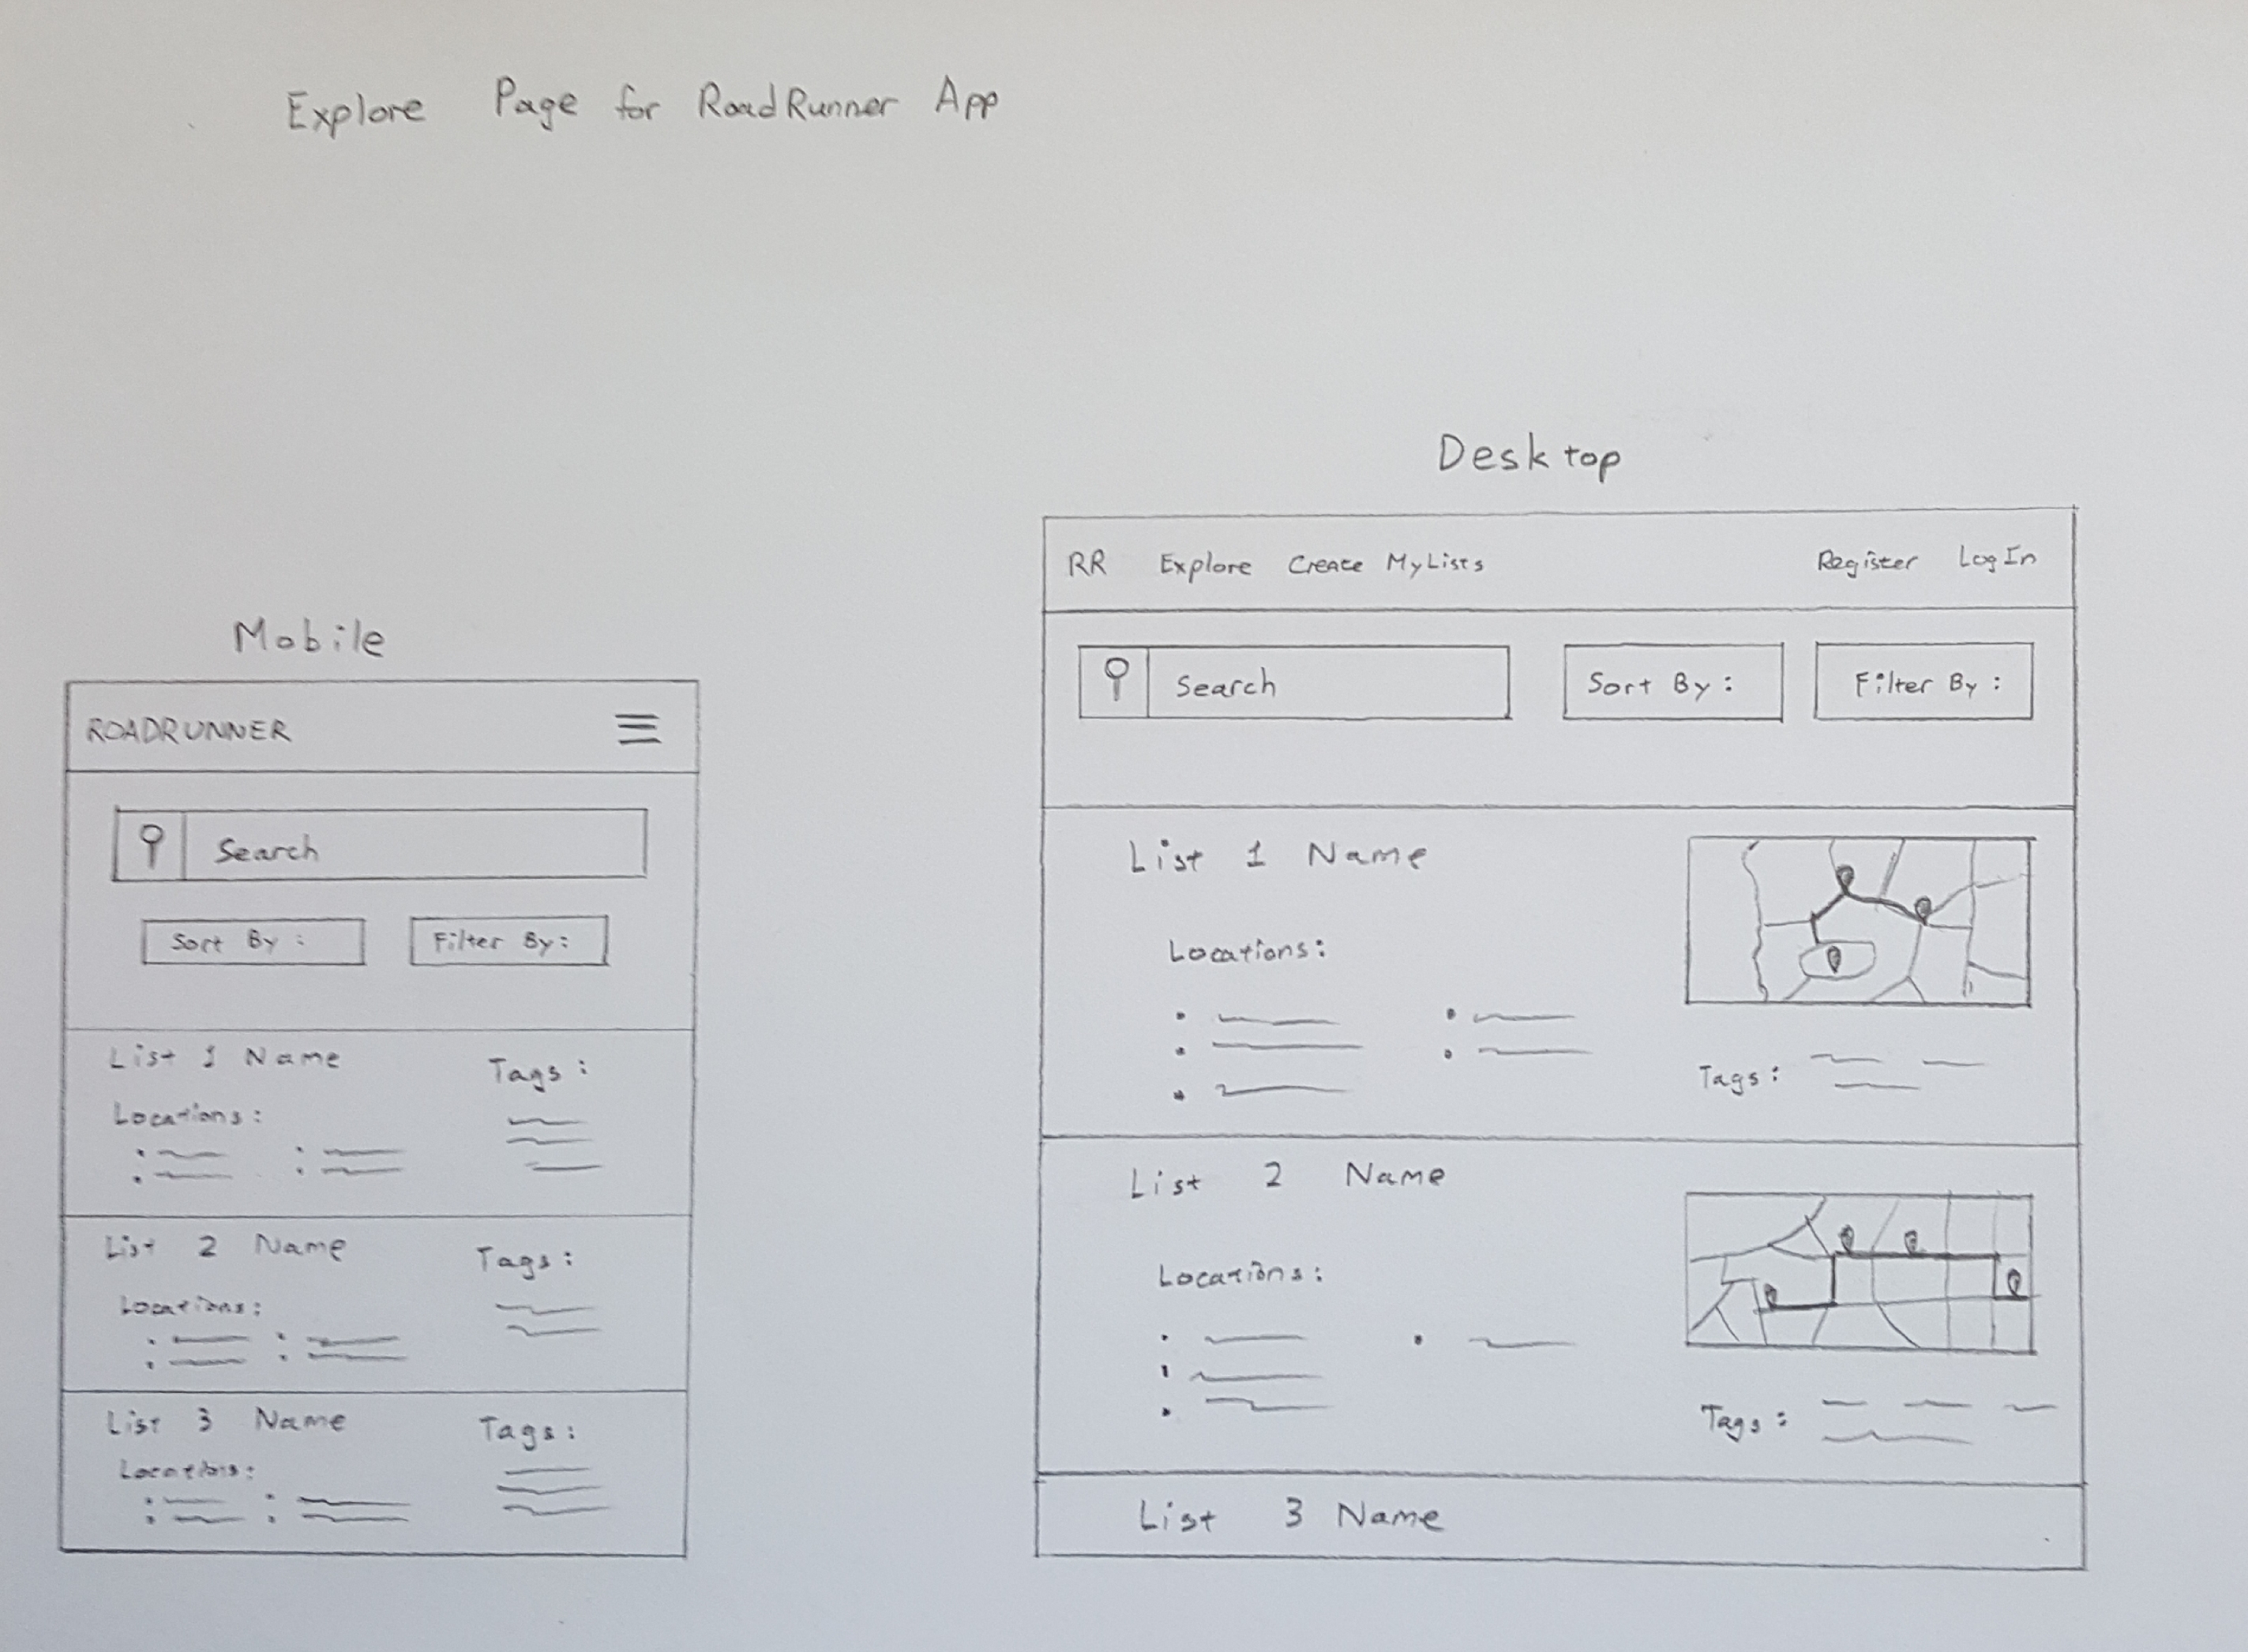 Explore Page for RoadRunner App
Mobile
ROADRUNNER
Search
Sort By :
Filter By:
List 1 Name
Tags :
Locations :
List 2 Name
Tags :
Locations:
List 3 Name
Tags :
Locations:
Desktop
RR Explore Create MyLists Register Log In
Search
Sort By :
Filter By :
List 1 Name
Locations:
Tags :
List 2 Name
Locations:
Tags :
List 3 Name